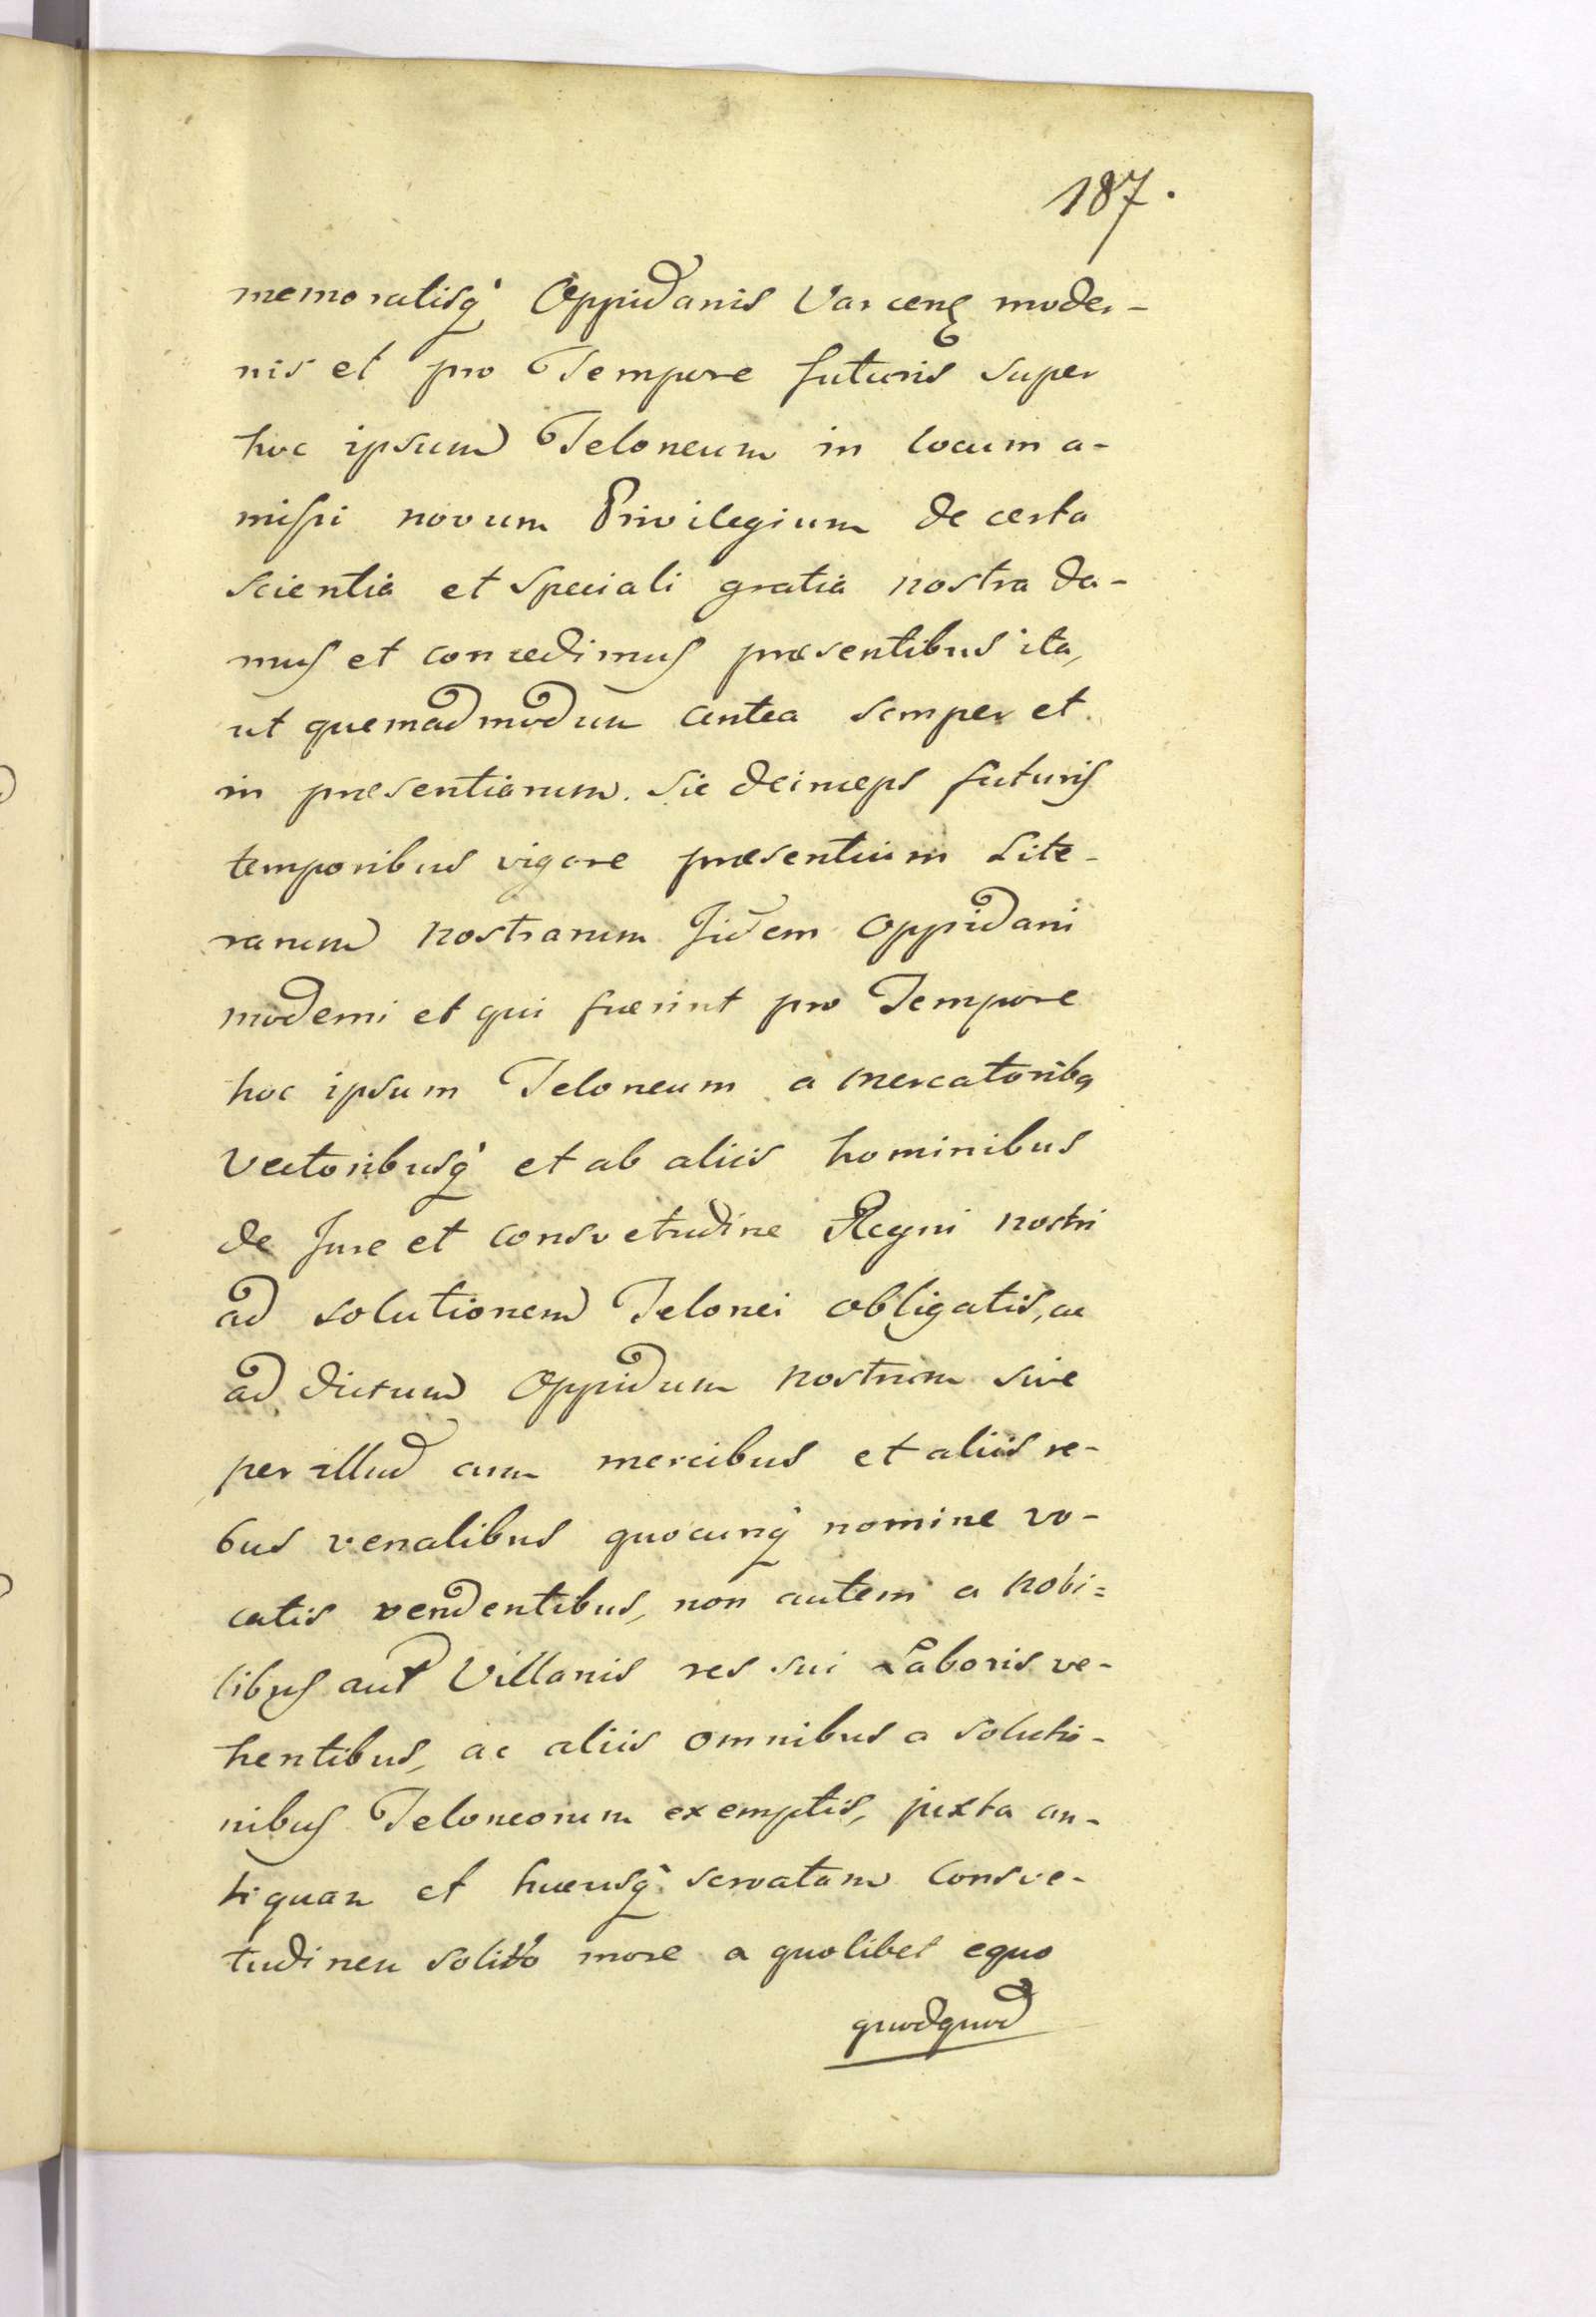 187.
memoratisq' Oppidanis Varcens moder-
nis et pro Tempore futuris super
hoc ipsum Teloneum in locum a-
missi novum Privilegium de certa
scientia et speciali gratia nostra da-
mus et concedimus præsentibus ita,
ut quemadmodum antea semper et
in præsentiarum. sic deinceps futuris
temporibus vigore præsentium Lite-
rarum nostrarum Jidem Oppidani
moderni et qui fuerint pro Tempore
hoc ipsum Teloneum a mercatoribq
Vectoribusq' et ab aliis hominibus
de Jure et consvetudine Regni nostri
ad solutionem Telonei obligatis, ac
ad dictum Oppidum nostrum sive
per illud cum mercibus et aliis re-
bus venalibus quocunq' nomine vo-
catis vendentibus, non autem a nobi=
libus aut Villanis res sui Laboris ve-
hentibus, ac aliis omnibus a solutio-
nibus Teloneorum exemptis, juxta an-
tiquam et hucusq' servatam Consve-
tudinem solito more a quolibet equo
quodquod